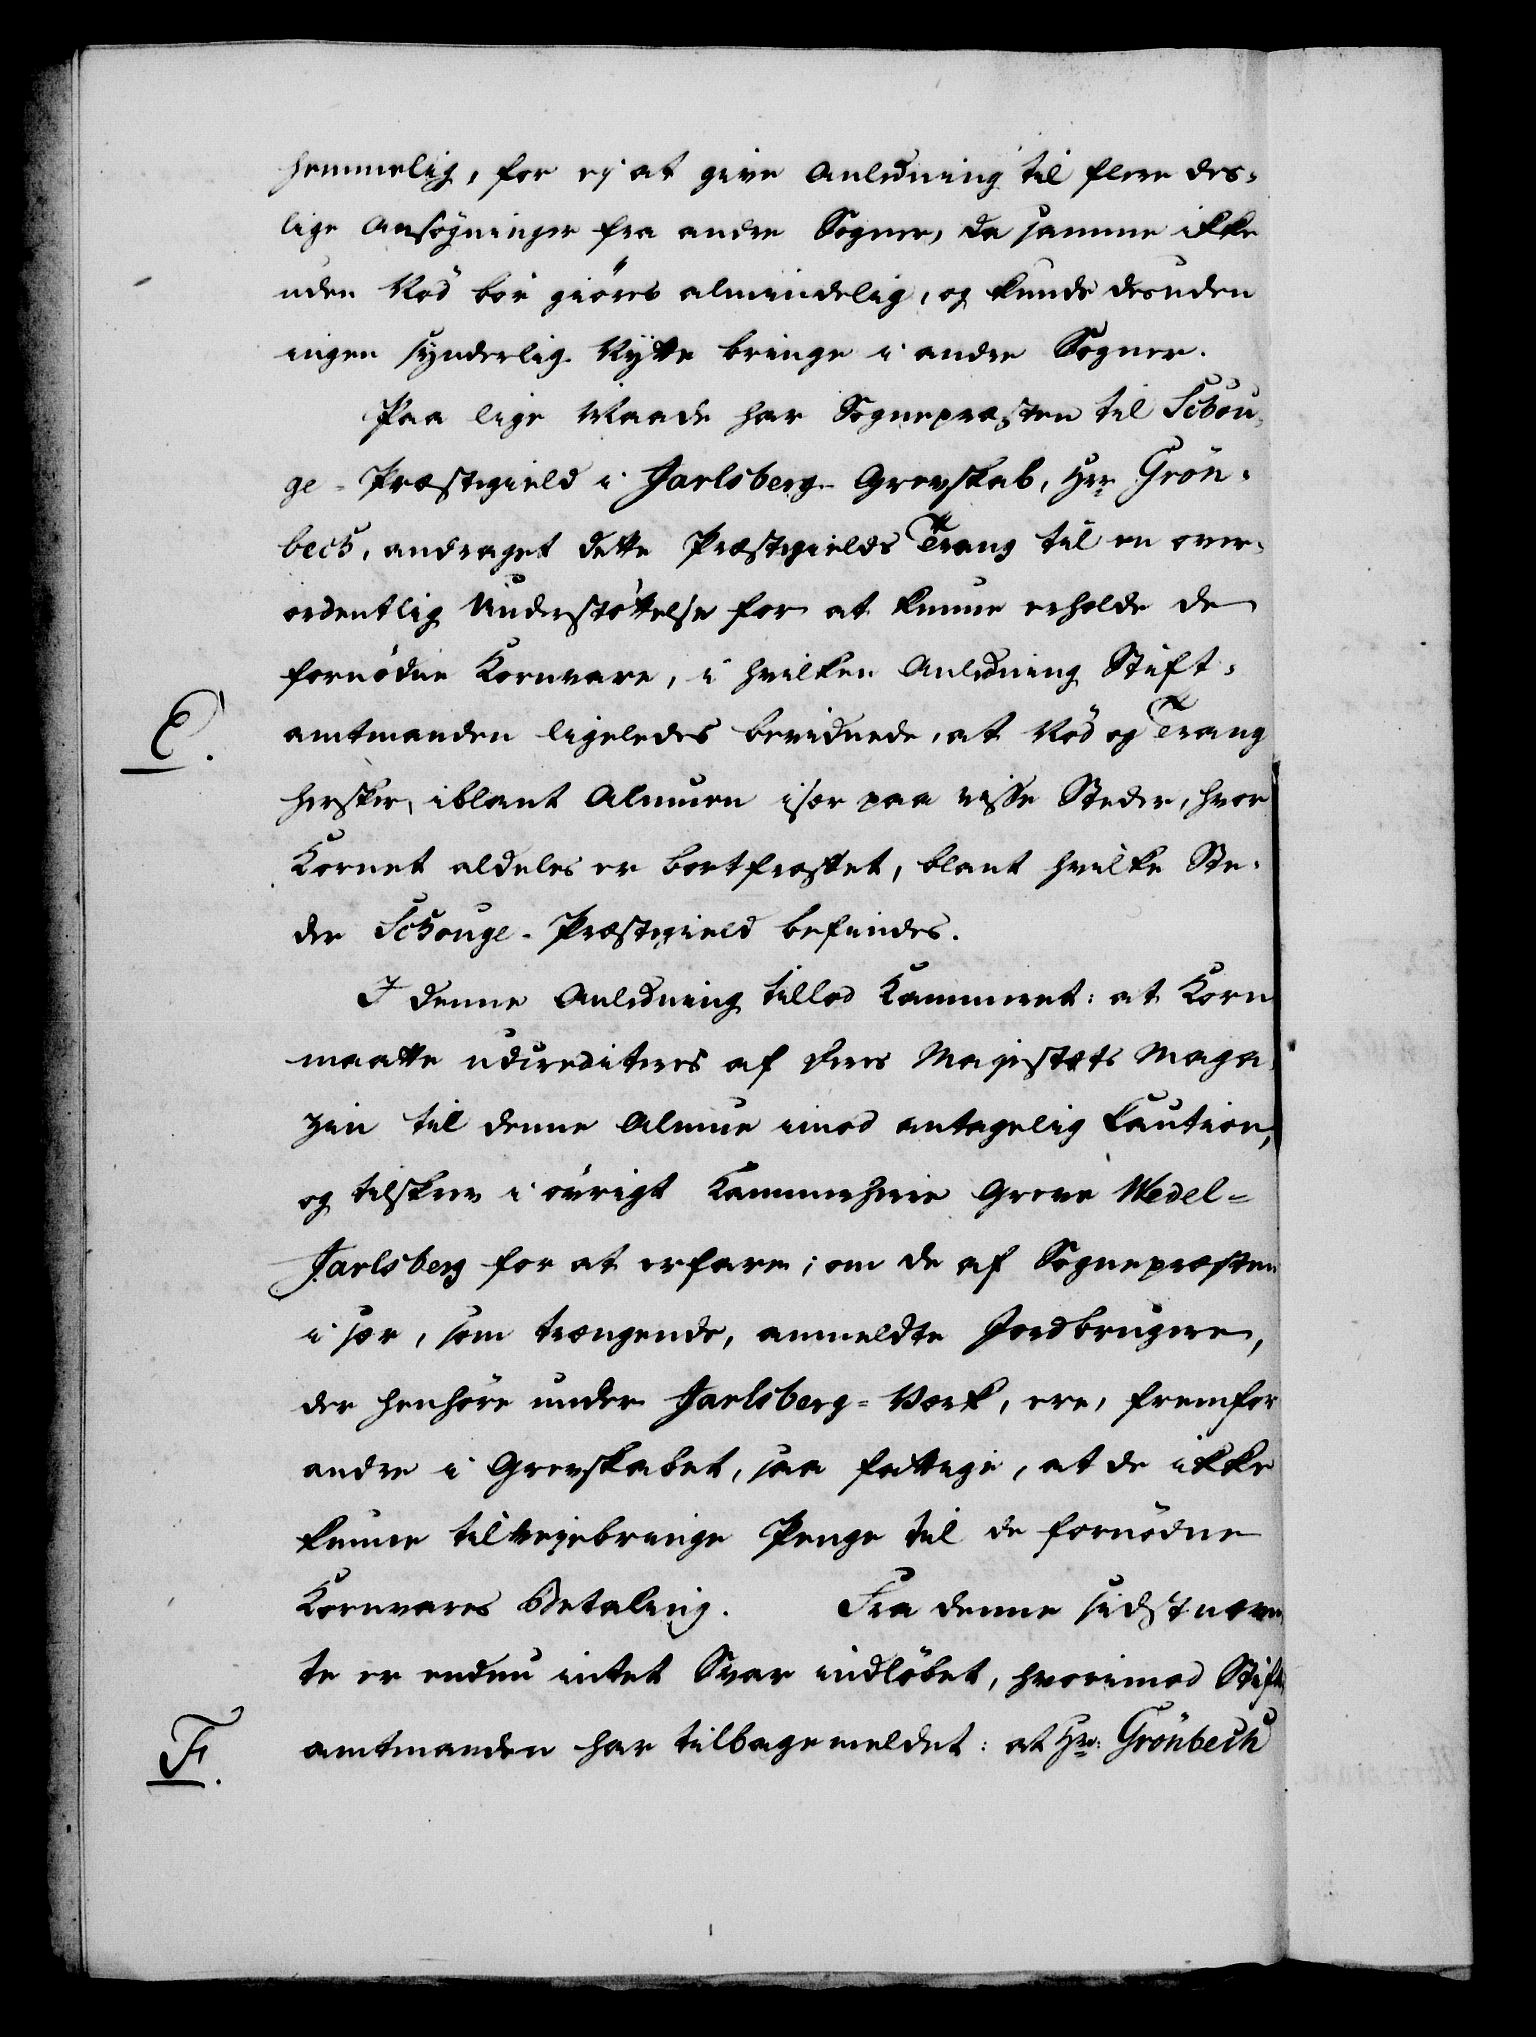 hemmelig, for ej at give Anledning til flere des-
lige Ansøgninger fra andre Sogner, da samme ikke
uden Nød bör giöres almindelig, og kunde desuden
ingen synderlig Nytte bringe i andre Sogner.
Paa lige Maade har Sognepræsten til Schou-
ge-Præstegield i Jarlsberg-Grevskab, Hr. Grön-
bech, andraget dette Præstegields Trang til en over-
ordentlig Understöttelse for at kunne erholde de
fornödne Kornvare, i hvilken Anledning Stift-
E. amtmanden ligeledes bevidnede, at Nöd og Trang
hersker iblant Almuen især paa visse Steder, hvor
Kornet aldeles er bortfrostet, blant hvilke Ste-
der Schouge-Præstegield befindes.
I denne Anledning tillod Kammeret: at Korn
maatte udcrediteres af Deres Majestæts Maga-
zin til denne Almue imod antagelig Caution,
og tilskrev i övrigt Kammerherre Greve Wedel-
Jarlsberg for at erfare; om de af Sognepræsten
i sær, som trængende, anmeldte Jordbrugere,
der henhöre under Jarlsberg-Værk, ere, fremfor
andre i Grevskabet, saa fattige, at de ikke
kunne tilvejebringe Penge til de fornödne
Kornvares Betaling. Fra denne sidstnævn-
te er endnu intet Svar indlöbet, hvorimod Stift-
F. amtmanden har tilbagemeldet: at Hr: Grönbech